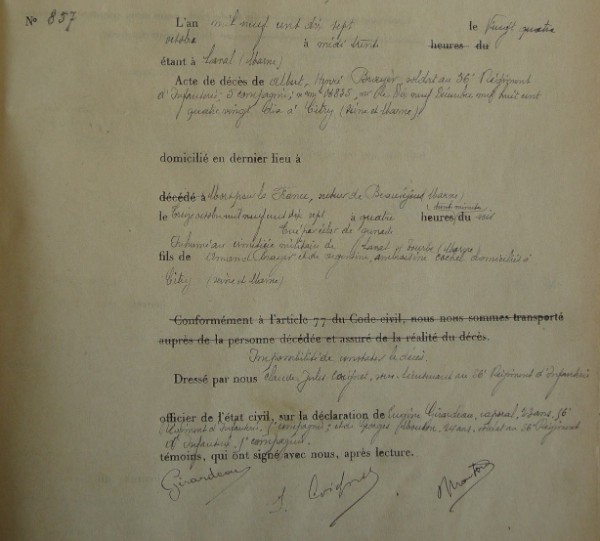 N° 857
L'an mil neuf cent dix sept le vingt quatre
octobre à midi trente heures du
étant à Laval (Marne)
Acte de décès de Albert, Henri Brayer, soldat au 36e Régiment
d'Infanterie; 5e compagnie; né le dix neuf décembre mil huit cent
quatre vingt à Citry (Seine et Marne)
domicilié en dernier lieu à
décédé à Mort pour la France, secteur de Beauséjour (Marne)
le treize octobre mil neuf cent dix sept à quatre heures trente minutes du soir
Tué par éclat de grenade
Inhumé au cimetière militaire de
fils de Armand Brayer et de domiciliés à
Citry (Seine et Marne)
Conformément à l'article 77 du Code civil, nous nous sommes transporté
auprès de la personne décédée et assuré de la réalité du décès.
Impossibilité de constater le décès.
Dressé par nous Claude Jules Coignet, sous-lieutenant au 36e Régiment d'Infanterie
officier de l'état civil, sur la déclaration de Eugène Girardeau, caporal, ans, 36e
Régiment d'Infanterie, 5e compagnie; et de Georges ans, soldat au 36e Régiment
d'Infanterie, 5e compagnie.
témoins, qui ont signé avec nous, après lecture.
Girardeau
J. Coignet